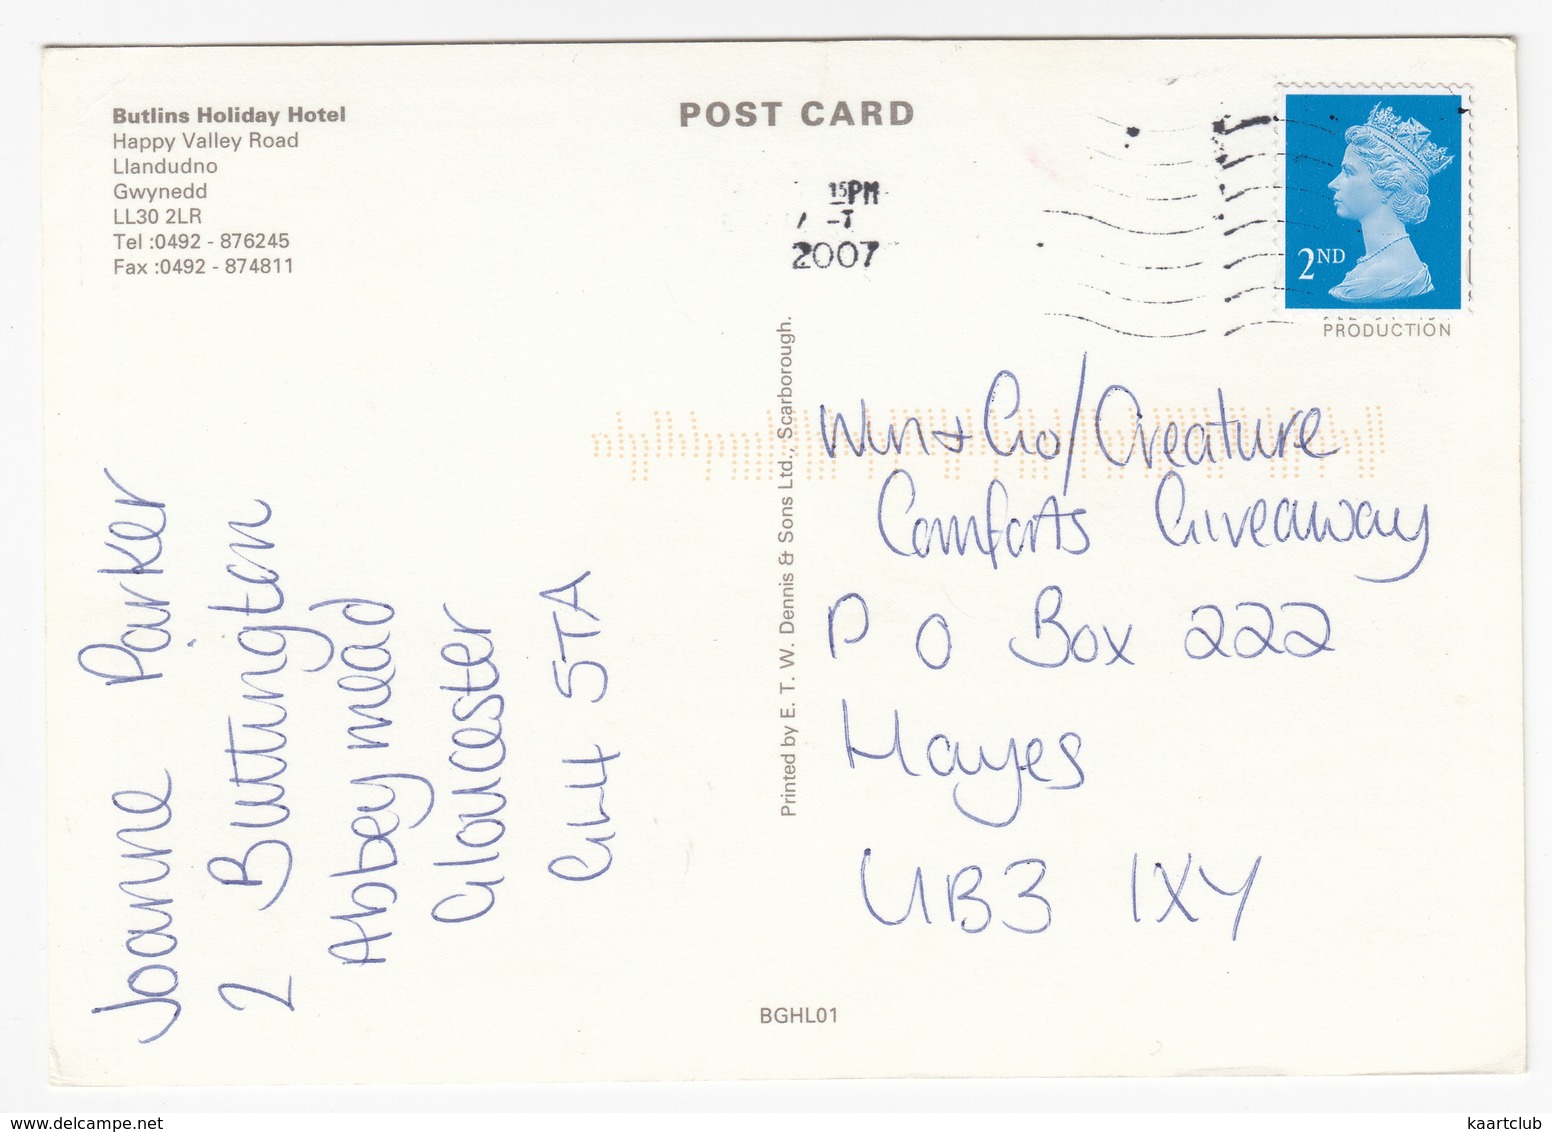 Butlins Holiday Hotel
Happy Valley Road
Llandudno
Gwynedd
LL30 2LR
Tel :0492 - 876245
Fax :0492 - 874811
POST CARD
15PM
2007
2ND
PRODUCTION
Printed by E. T. W. Dennis & Sons Ltd., Scarborough.
Win & Go/Creature
Comforts Giveaway
P O Box 222
Hayes
UB3 1XY
Joanne Parker
2 Buttington
Abbeymead
Gloucester
GL4 5TA
BGHL01
www.delcampe.net
kaartclub